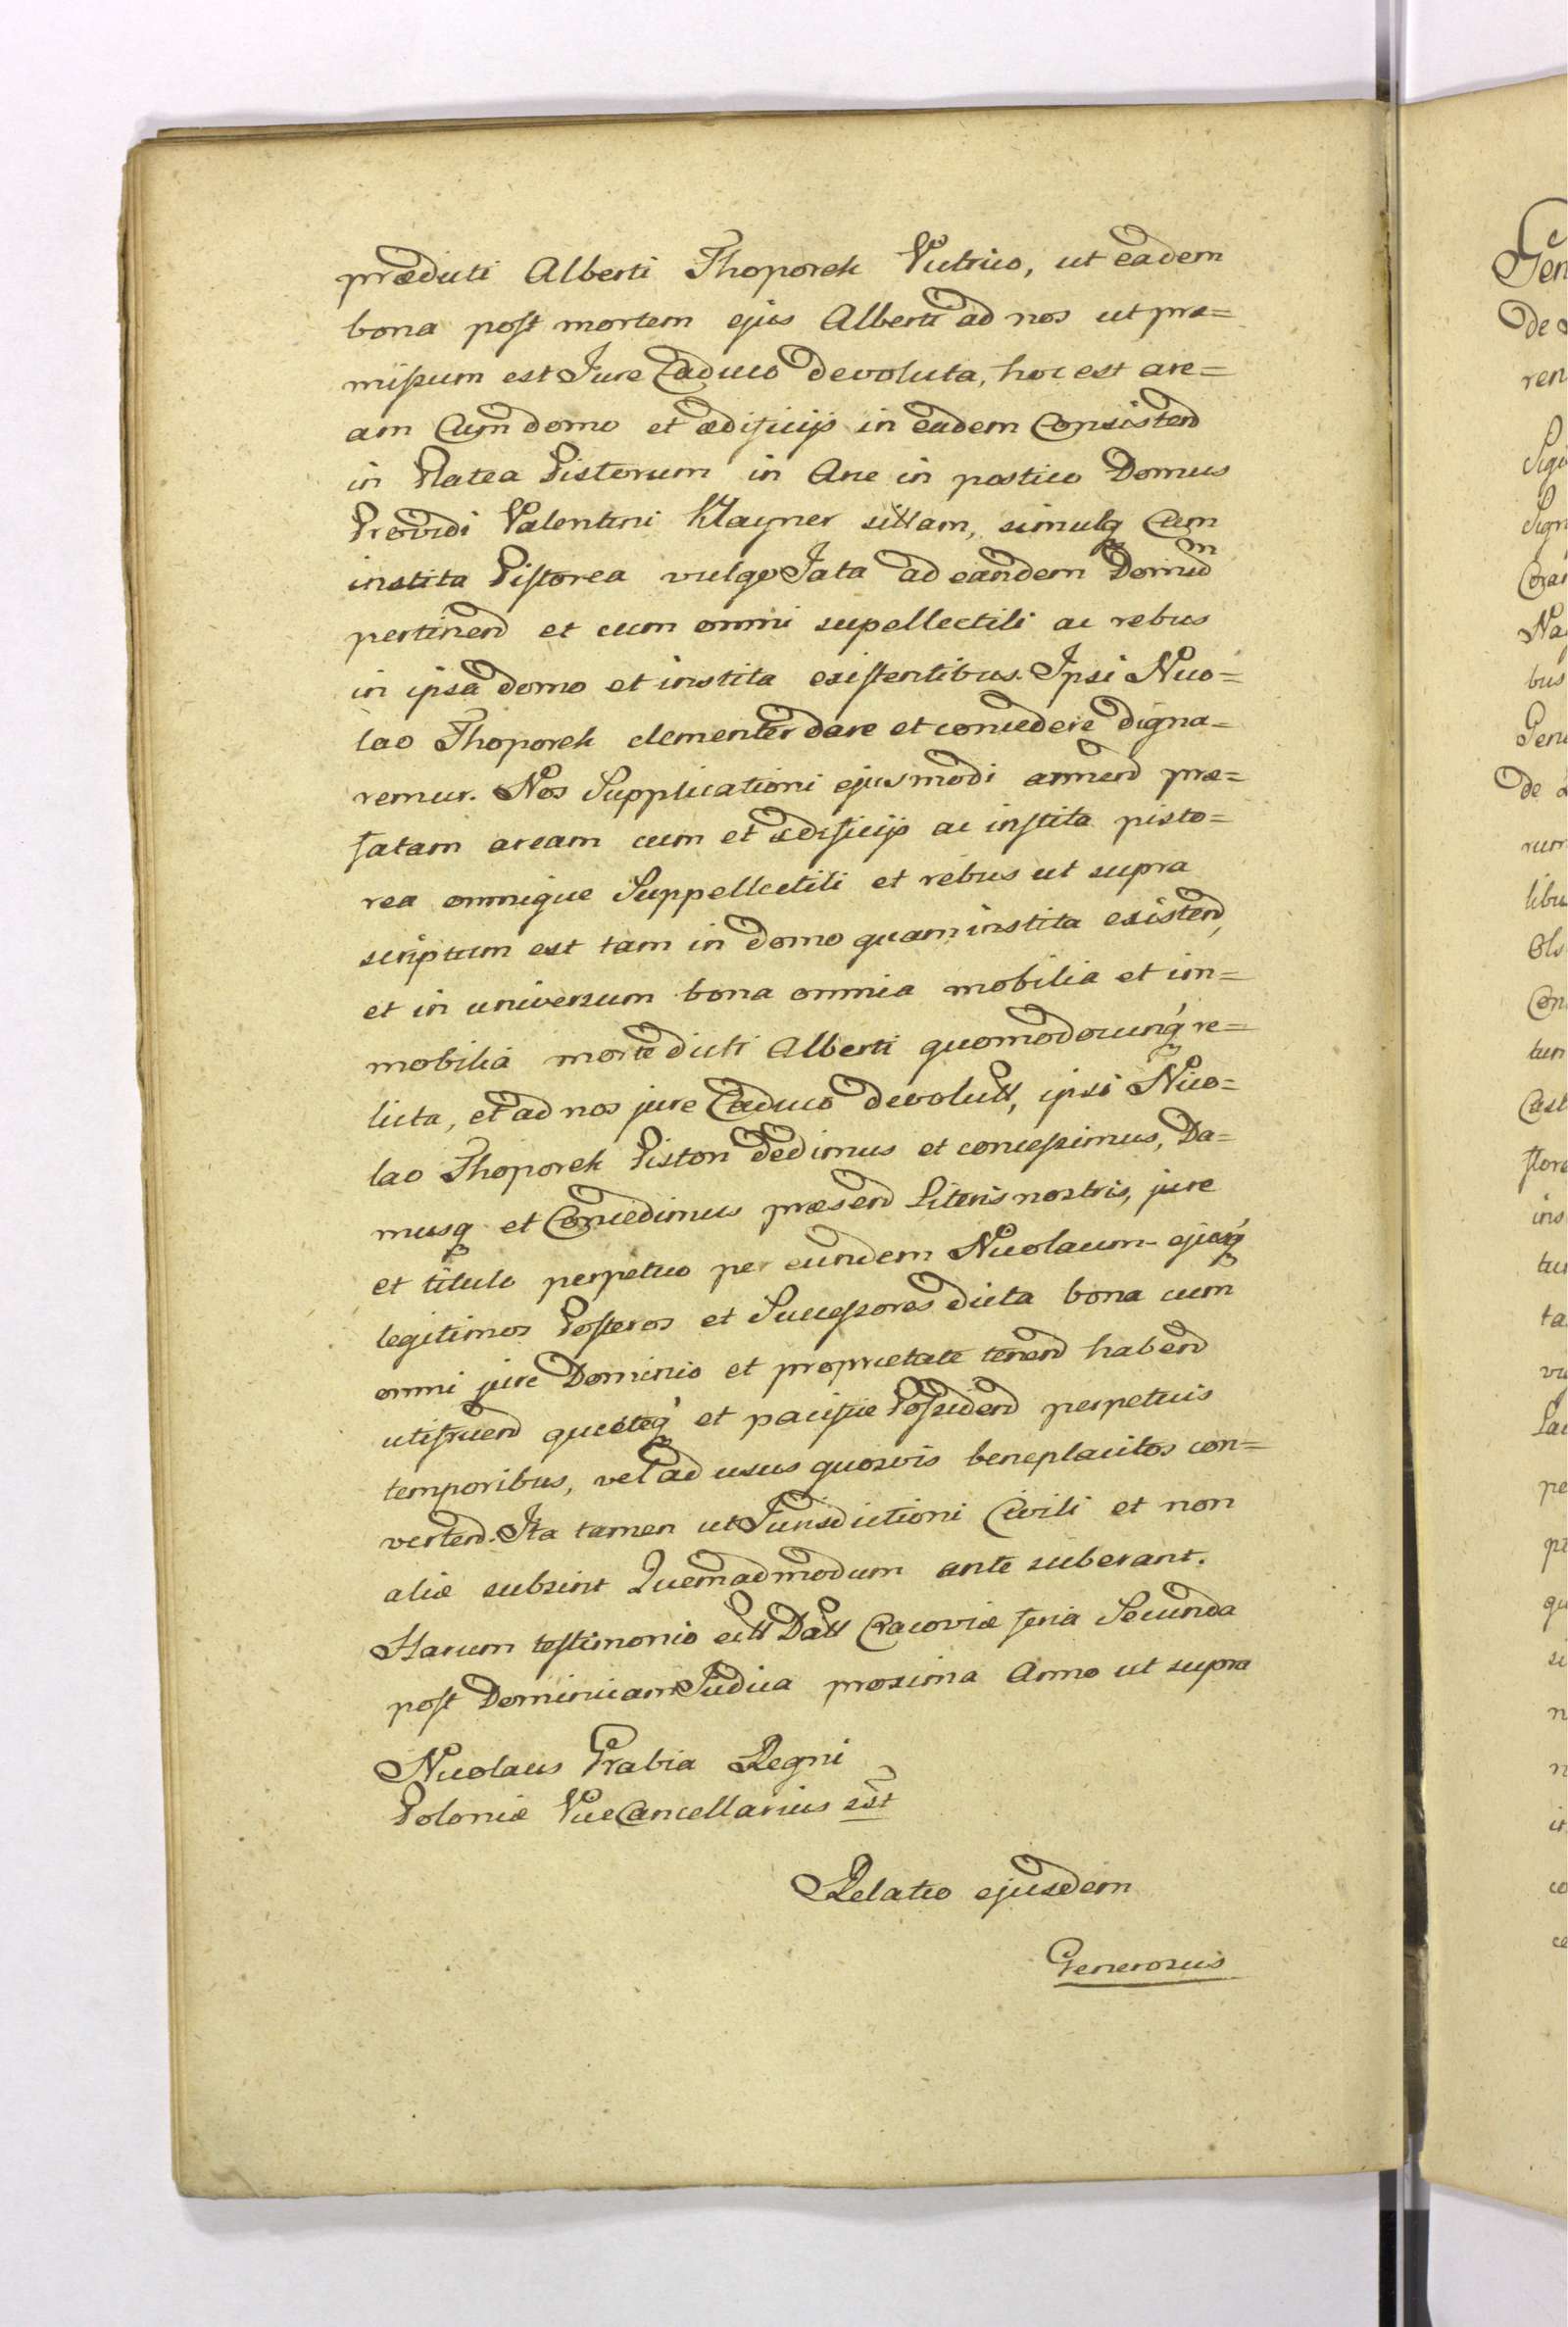 prædicti Alberti Thoporek Vitrico, ut eadem
bona post mortem ejus Alberti ad nos ut præ=
missum est Jure Caduco devoluta, hoc est are=
am Cum domo et ædificijs in eadem Consistend
in Platea Pistorum in Arce in postico Domus
Providi Valentini Klayner sittam, simulq Cum
instita Pistorea vulgo Jata ad eandem Domum
pertinend et cum omni supellectili ac rebus
in ipsa domo et instita existentibus. Ipsi Nico=
lao Thoporek clementer dare et concedere digna=
remur. Nos Supplicationi ejusmodi annuend præ=
fatam aream cum et ædificijs ac instita pisto=
rea omnique Suppellectili et rebus ut supra
scriptum est tam in domo quam instita existend,
et in universum bona omnia mobilia et im=
mobilia morte dicti Alberti quomodocunq re=
licta, et ad nos jure Caduco devolutt, ipsi Nico=
lao Thoporek Pistori dedimus et concessimus, Da=
musq et Concedimus præsend Literis nostris, jure
et titulo perpetuo per eundem Nicolaum ejusq
legitimos Posteros et Successores dicta bona cum
omni jure Dominio et proprietate tenend habend
utifruend quieteq et pacifice Possidend perpetuis
temporibus, vel ad usus quosvis beneplacitos con=
vertend. Ita tamen ut Jurisdictioni Civili et non
aliæ subsint Quemadmodum ante suberant.
Harum testimonio ectt Datt Cracoviæ feria Secunda
post Dominicam Judica proxima Anno ut supra
Nicolaus Grabia Regni
Poloniæ ViceCancellarius sst
Relatio ejusdem
Generosus
Gen
de
ren
Sigi
Sign
Na
bus
Gen
de
rum
libu
Ols
Con
tun
Cast
flore
ins
tu
ta
vi
Lac
pe
pr
qu
si
n
n
it
co
ce